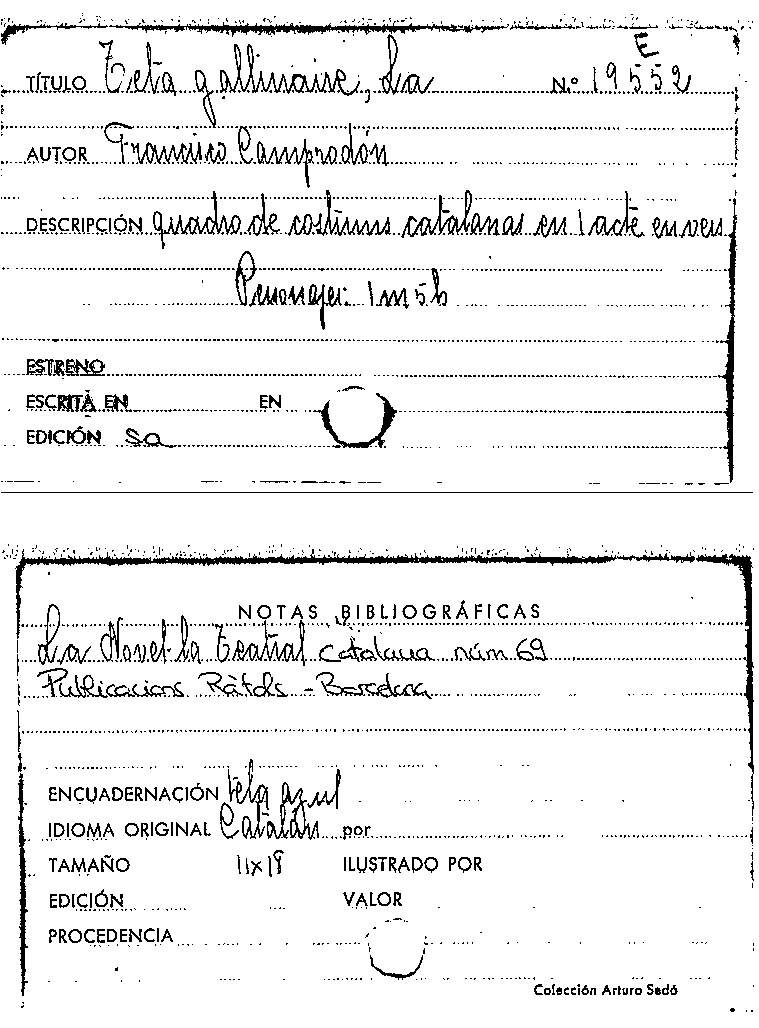 E
TÍTULO Teta gallinaire, La N.º 19552
AUTOR Francisco Camprodón
DESCRIPCIÓN quadro de costums catalanas en 1 acte en vers
Personajes: 1m 5h
ESTRENO
ESCRITA EN EN
EDICIÓN sa
NOTAS BIBLIOGRÁFICAS
La Novel·la Teatral catalana núm 69
Publicacions Ràfols - Barcelona
ENCUADERNACIÓN tela azul
IDIOMA ORIGINAL Catalán por
TAMAÑO 11x18 ILUSTRADO POR
EDICIÓN VALOR
PROCEDENCIA
Colección Arturo Sedó